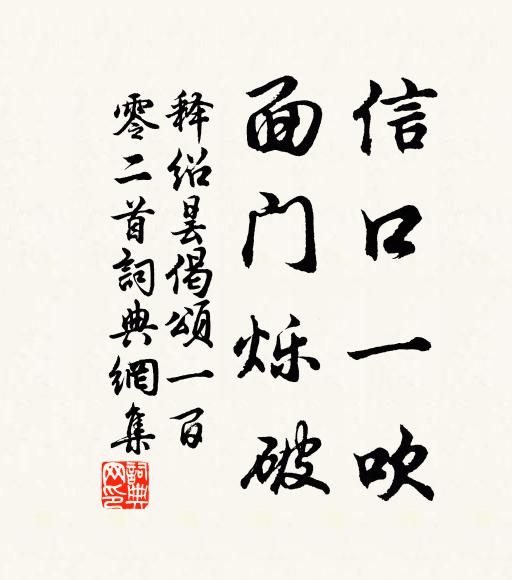 信口一吹
面门烁破
释绍昙偈颂一百
零二首詞典網集
詞典网印